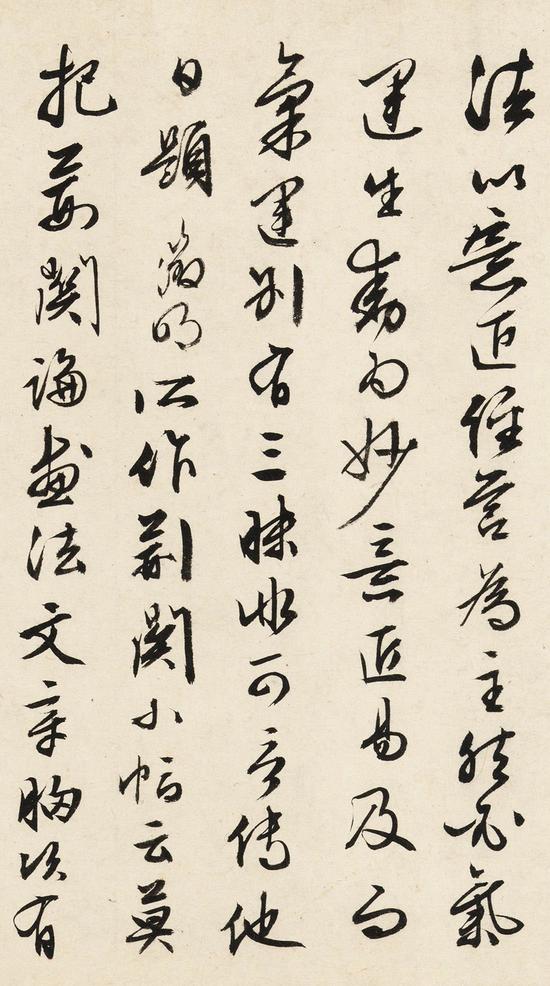 法以意匠經營為主然必氣
運生動為妙意匠易及而
氣運別有三昧非可言傳他
日題徵明所作荊關小幅云莫
把荊關論畫法文章胸次有